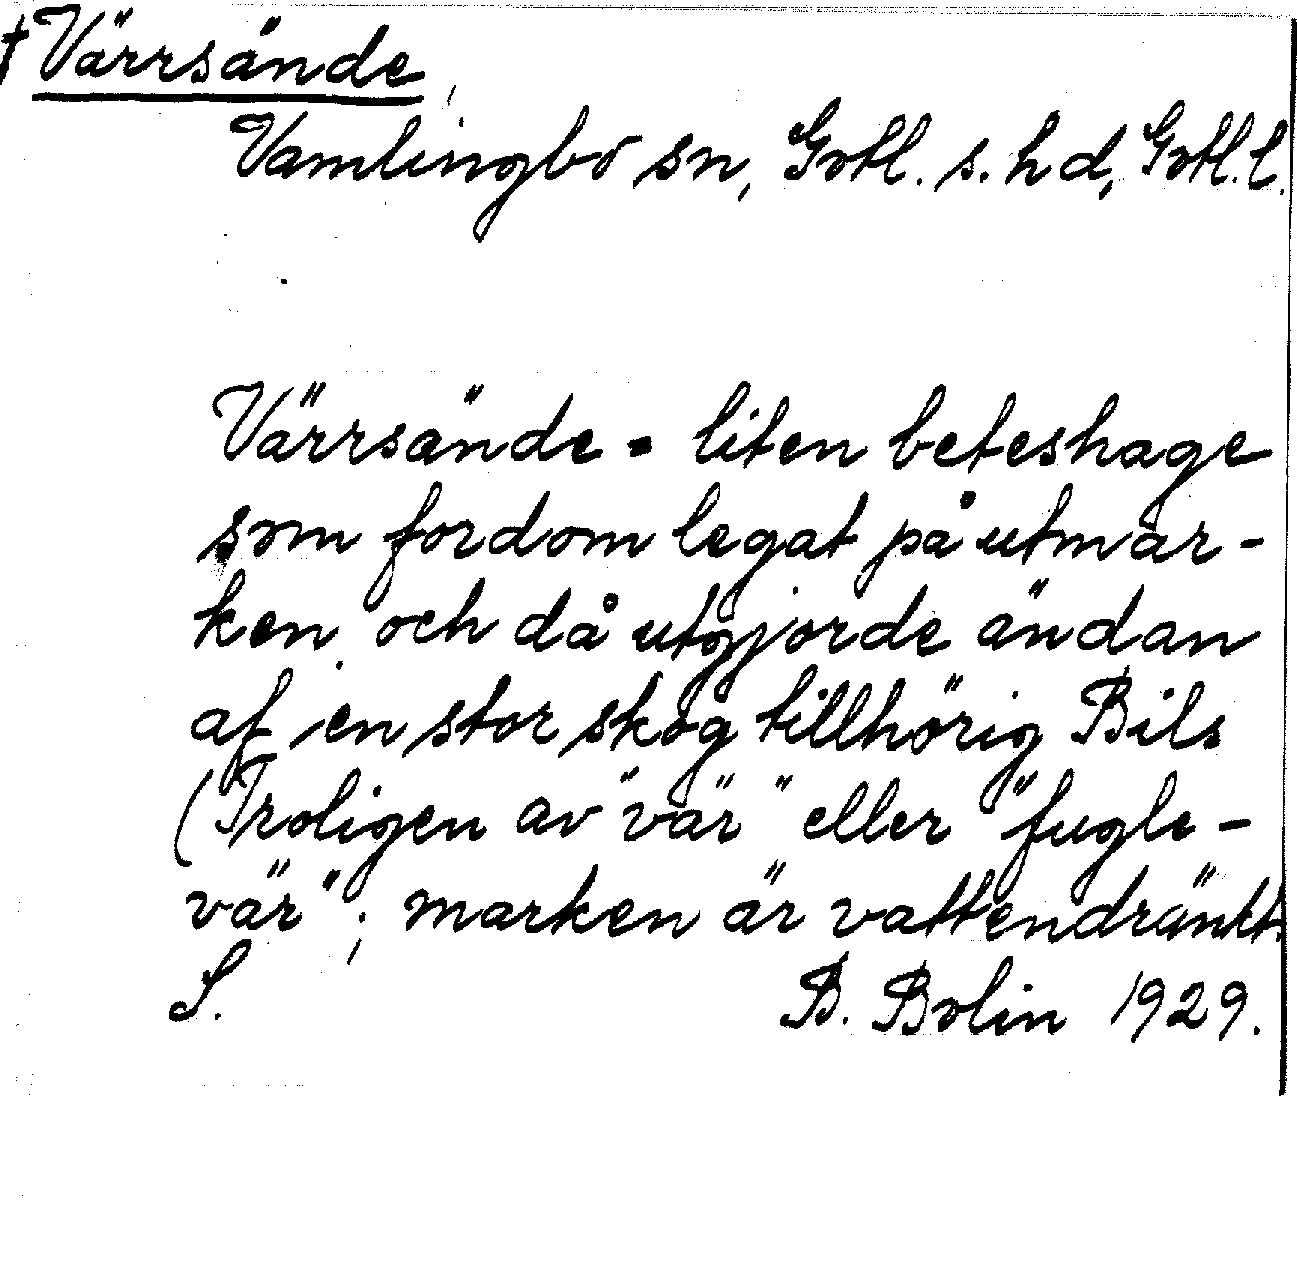 † Värrsände
Vamlingbo sn, Gotl. s. hd, Gotl. l.
Värrsände = liten beteshage
som fordom legat på utmar-
ken och då utgjorde ändan
af en stor skog tillhörig Bils
(Troligen av "vär" eller "fugle-
vär"; marken är vattendränkt.
S. B. Bolin 1929.